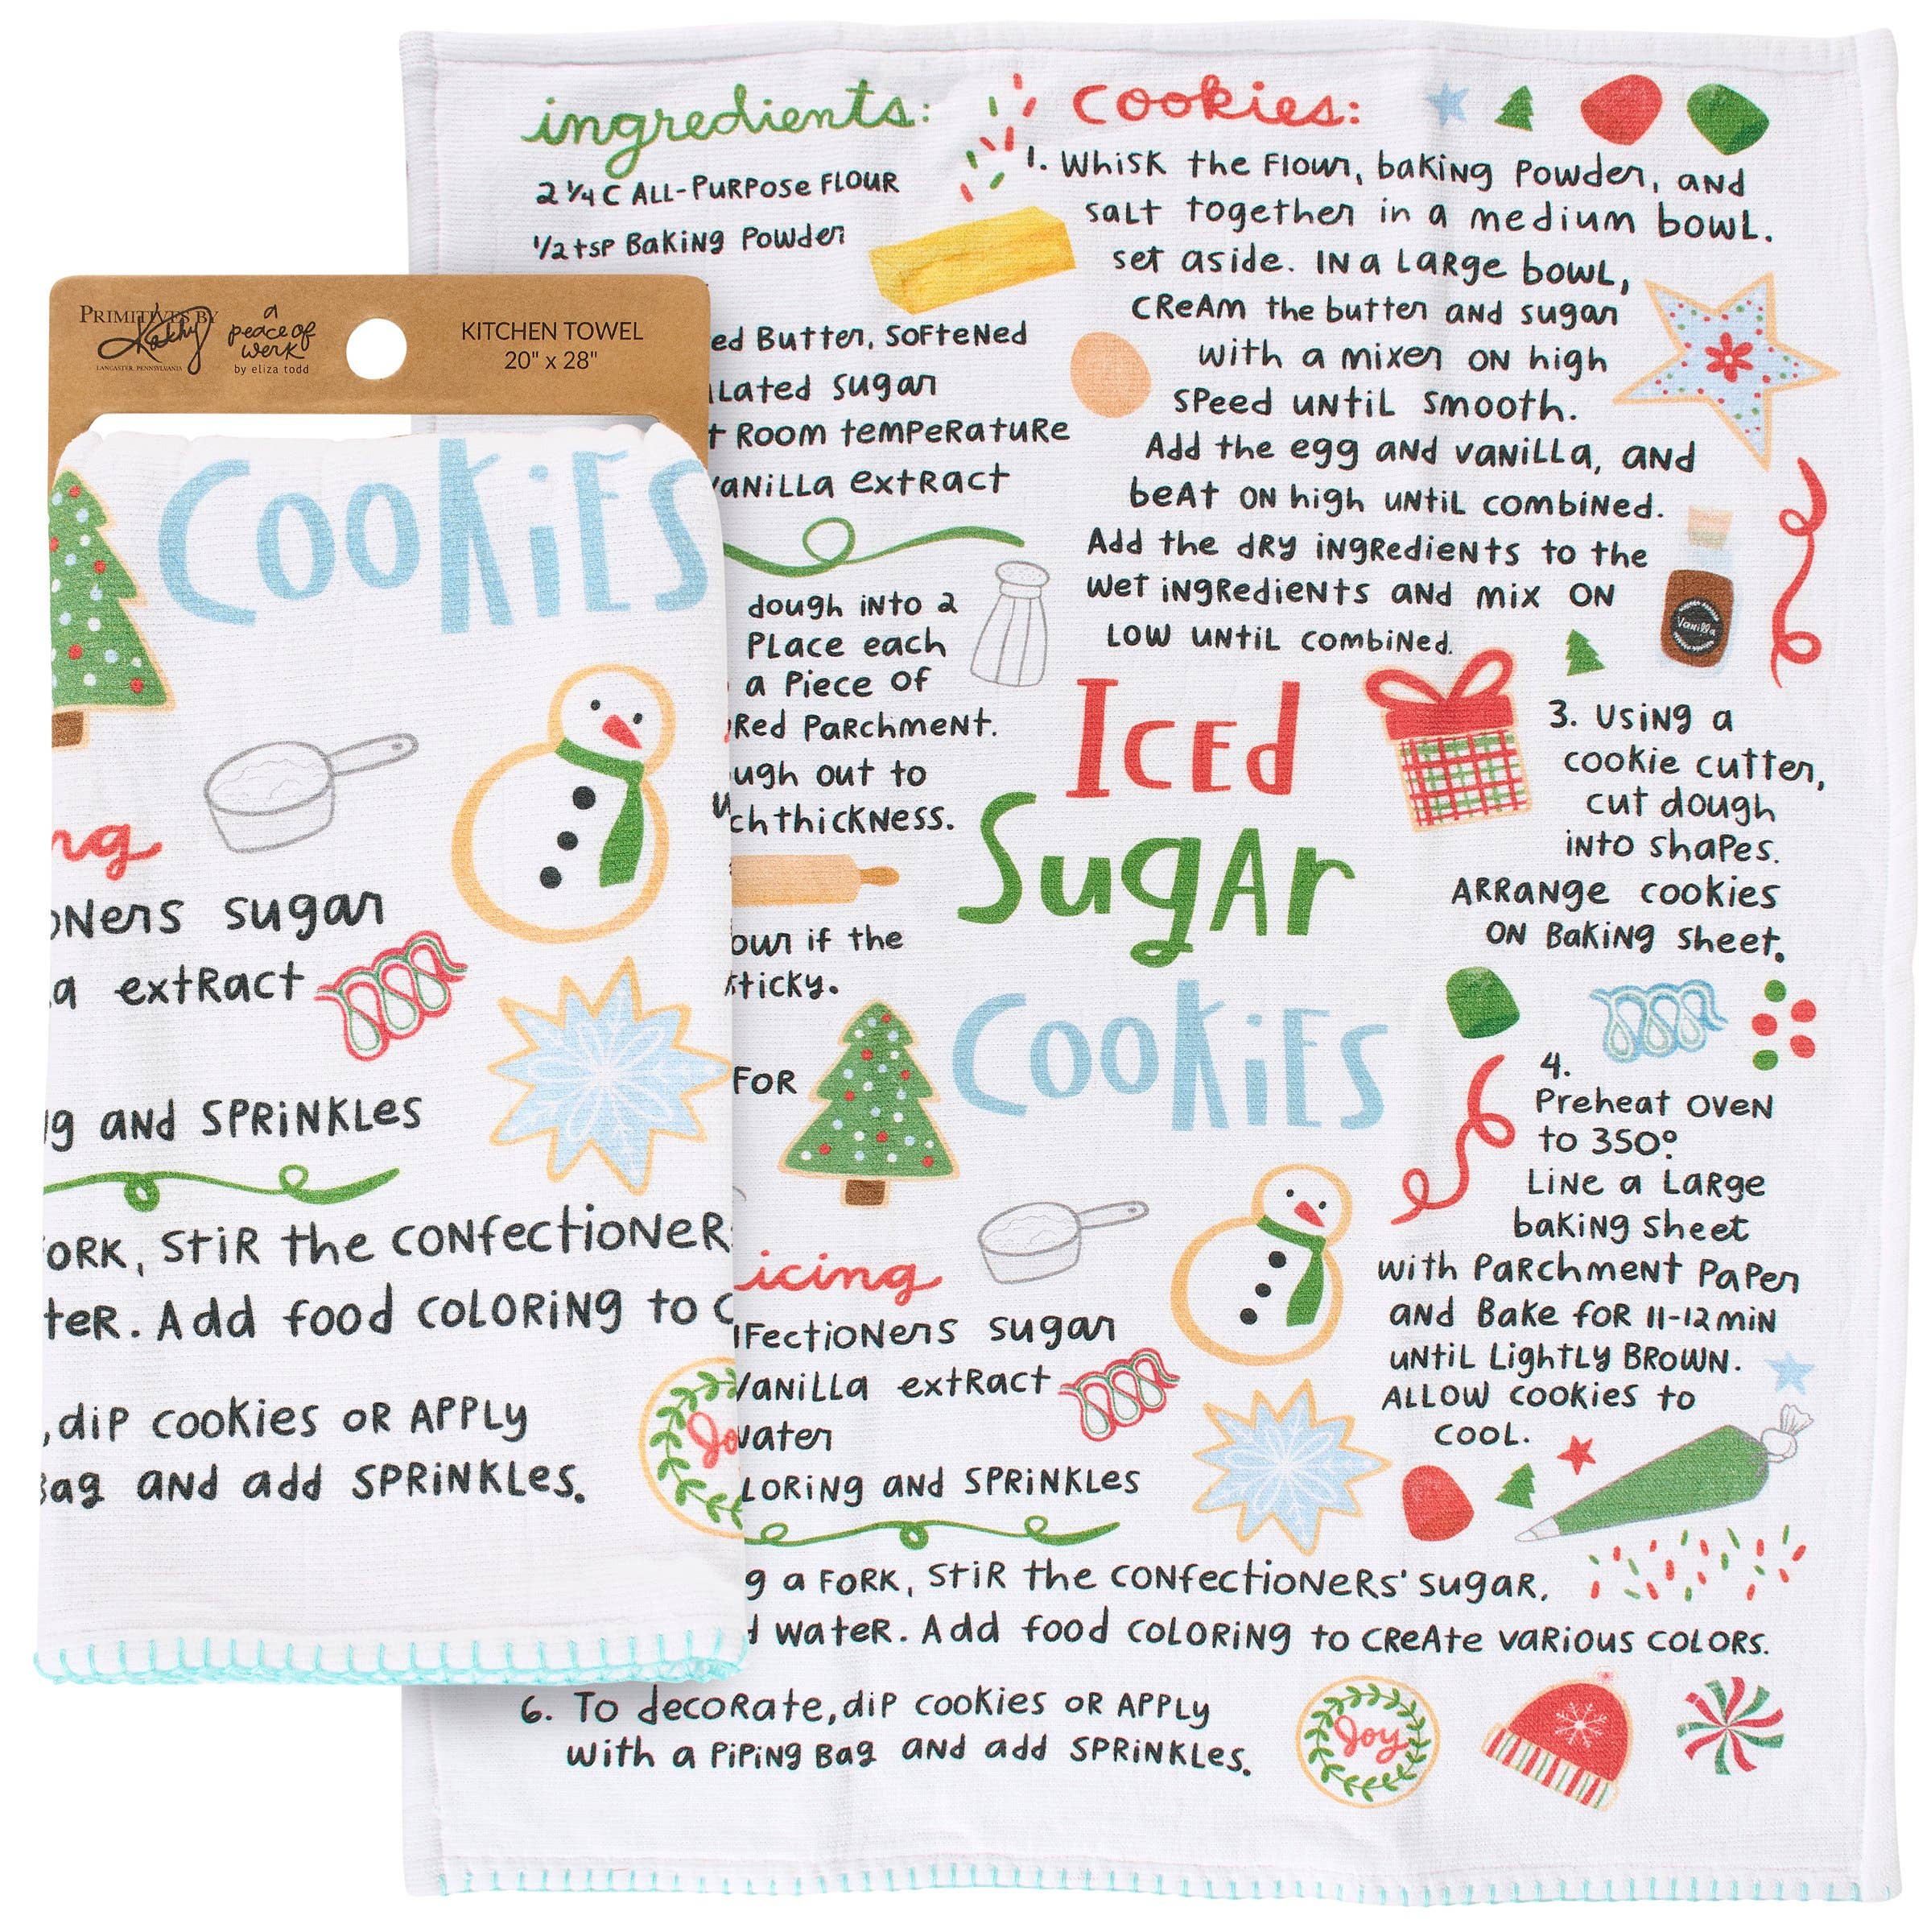 PRIMITIVES BY
Kathy
LANCASTER, PENNSYLVANIA
a
peace of
werk
by eliza todd
KITCHEN TOWEL
20" x 28"
COOKIES
sugar
extract
and SPRINKLES
stir the
Add food coloring to
, dip cookies or apply
and add sprinkles.
ingredients:
2 1/4 C All-Purpose Flour
1/2 tsp Baking Powder
Butter, Softened
sugar
Room temperature
extract
dough into 2
Place each
a Piece of
Parchment.
out to
thickness.
if the
For
Cookies:
1. Whisk the flour, baking powder, and
salt together in a medium bowl.
set aside. In a large bowl,
cream the butter and sugar
with a mixer on high
speed until smooth.
Add the egg and vanilla, and
beat on high until combined.
Add the dry ingredients to the
wet ingredients and mix on
low until combined.
Vanilla
Iced
Sugar
Cookies
3. Using a
cookie cutter,
cut dough
into shapes.
Arrange cookies
on baking sheet.
4.
Preheat oven
to 350°.
Line a large
baking sheet
with parchment paper
and bake for 11-12 min
until lightly brown.
Allow cookies to
cool.
icing
sugar
extract
and sprinkles
a fork, stir the confectioners' sugar,
water. Add food coloring to create various colors.
6. To decorate, dip cookies or apply
with a piping bag and add sprinkles.
Joy